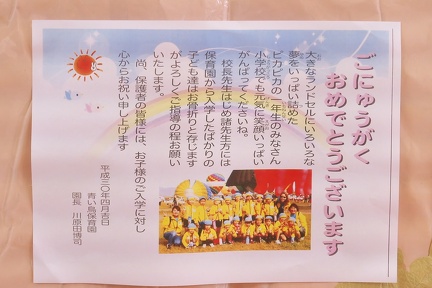 ごにゅうがく
おめでとうございます
大きなランドセルにいろいろな
夢をいっぱい詰めた
ピカピカの一年生のみなさん
小学校でも元気に笑顔いっぱい
がんばってくださいね。
校長先生はじめ諸先生方には
保育園から入学したばかりの
子ども達はお骨折りと存じます
がよろしくご指導の程お願い
いたします。
尚、保護者の皆様には、お子様のご入学に対し
心からお祝い申し上げます
平成三〇年四月吉日
青い鳥保育園
園長 川原田博司